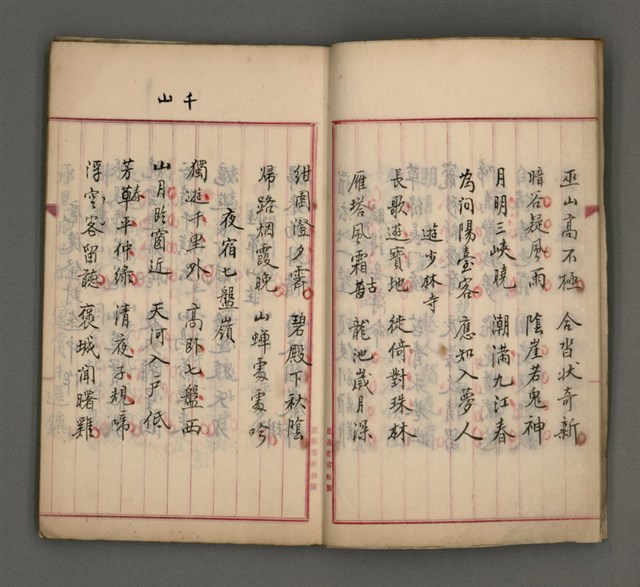 巫山高不極 合沓狀奇新
暗谷疑風雨 陰崖若鬼神
月明三峽曉 潮滿九江春
為问陽臺客 應知入夢人
遊少林寺
長歌遊寶地 徙倚對珠林
雁塔風霜昔古 龍池歲月深
紺園澄夕霽 碧殿下秋陰
帰路烟霞晚 山蝉處處吟
夜宿七盤嶺
獨遊千里外 高卧七盤西
山月临窗近 天河入戸低
芳草平仲绿 清夜子規啼
春
浮空客留聽 褒城闻曙雞
千山